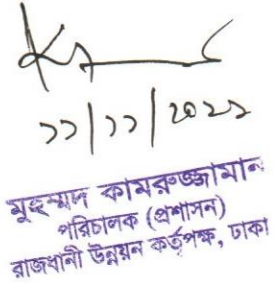 ১১/১১/২০২১
মুহম্মদ কামরুজ্জামান
পরিচালক (প্রশাসন)
রাজধানী উন্নয়ন কর্তৃপক্ষ, ঢাকা